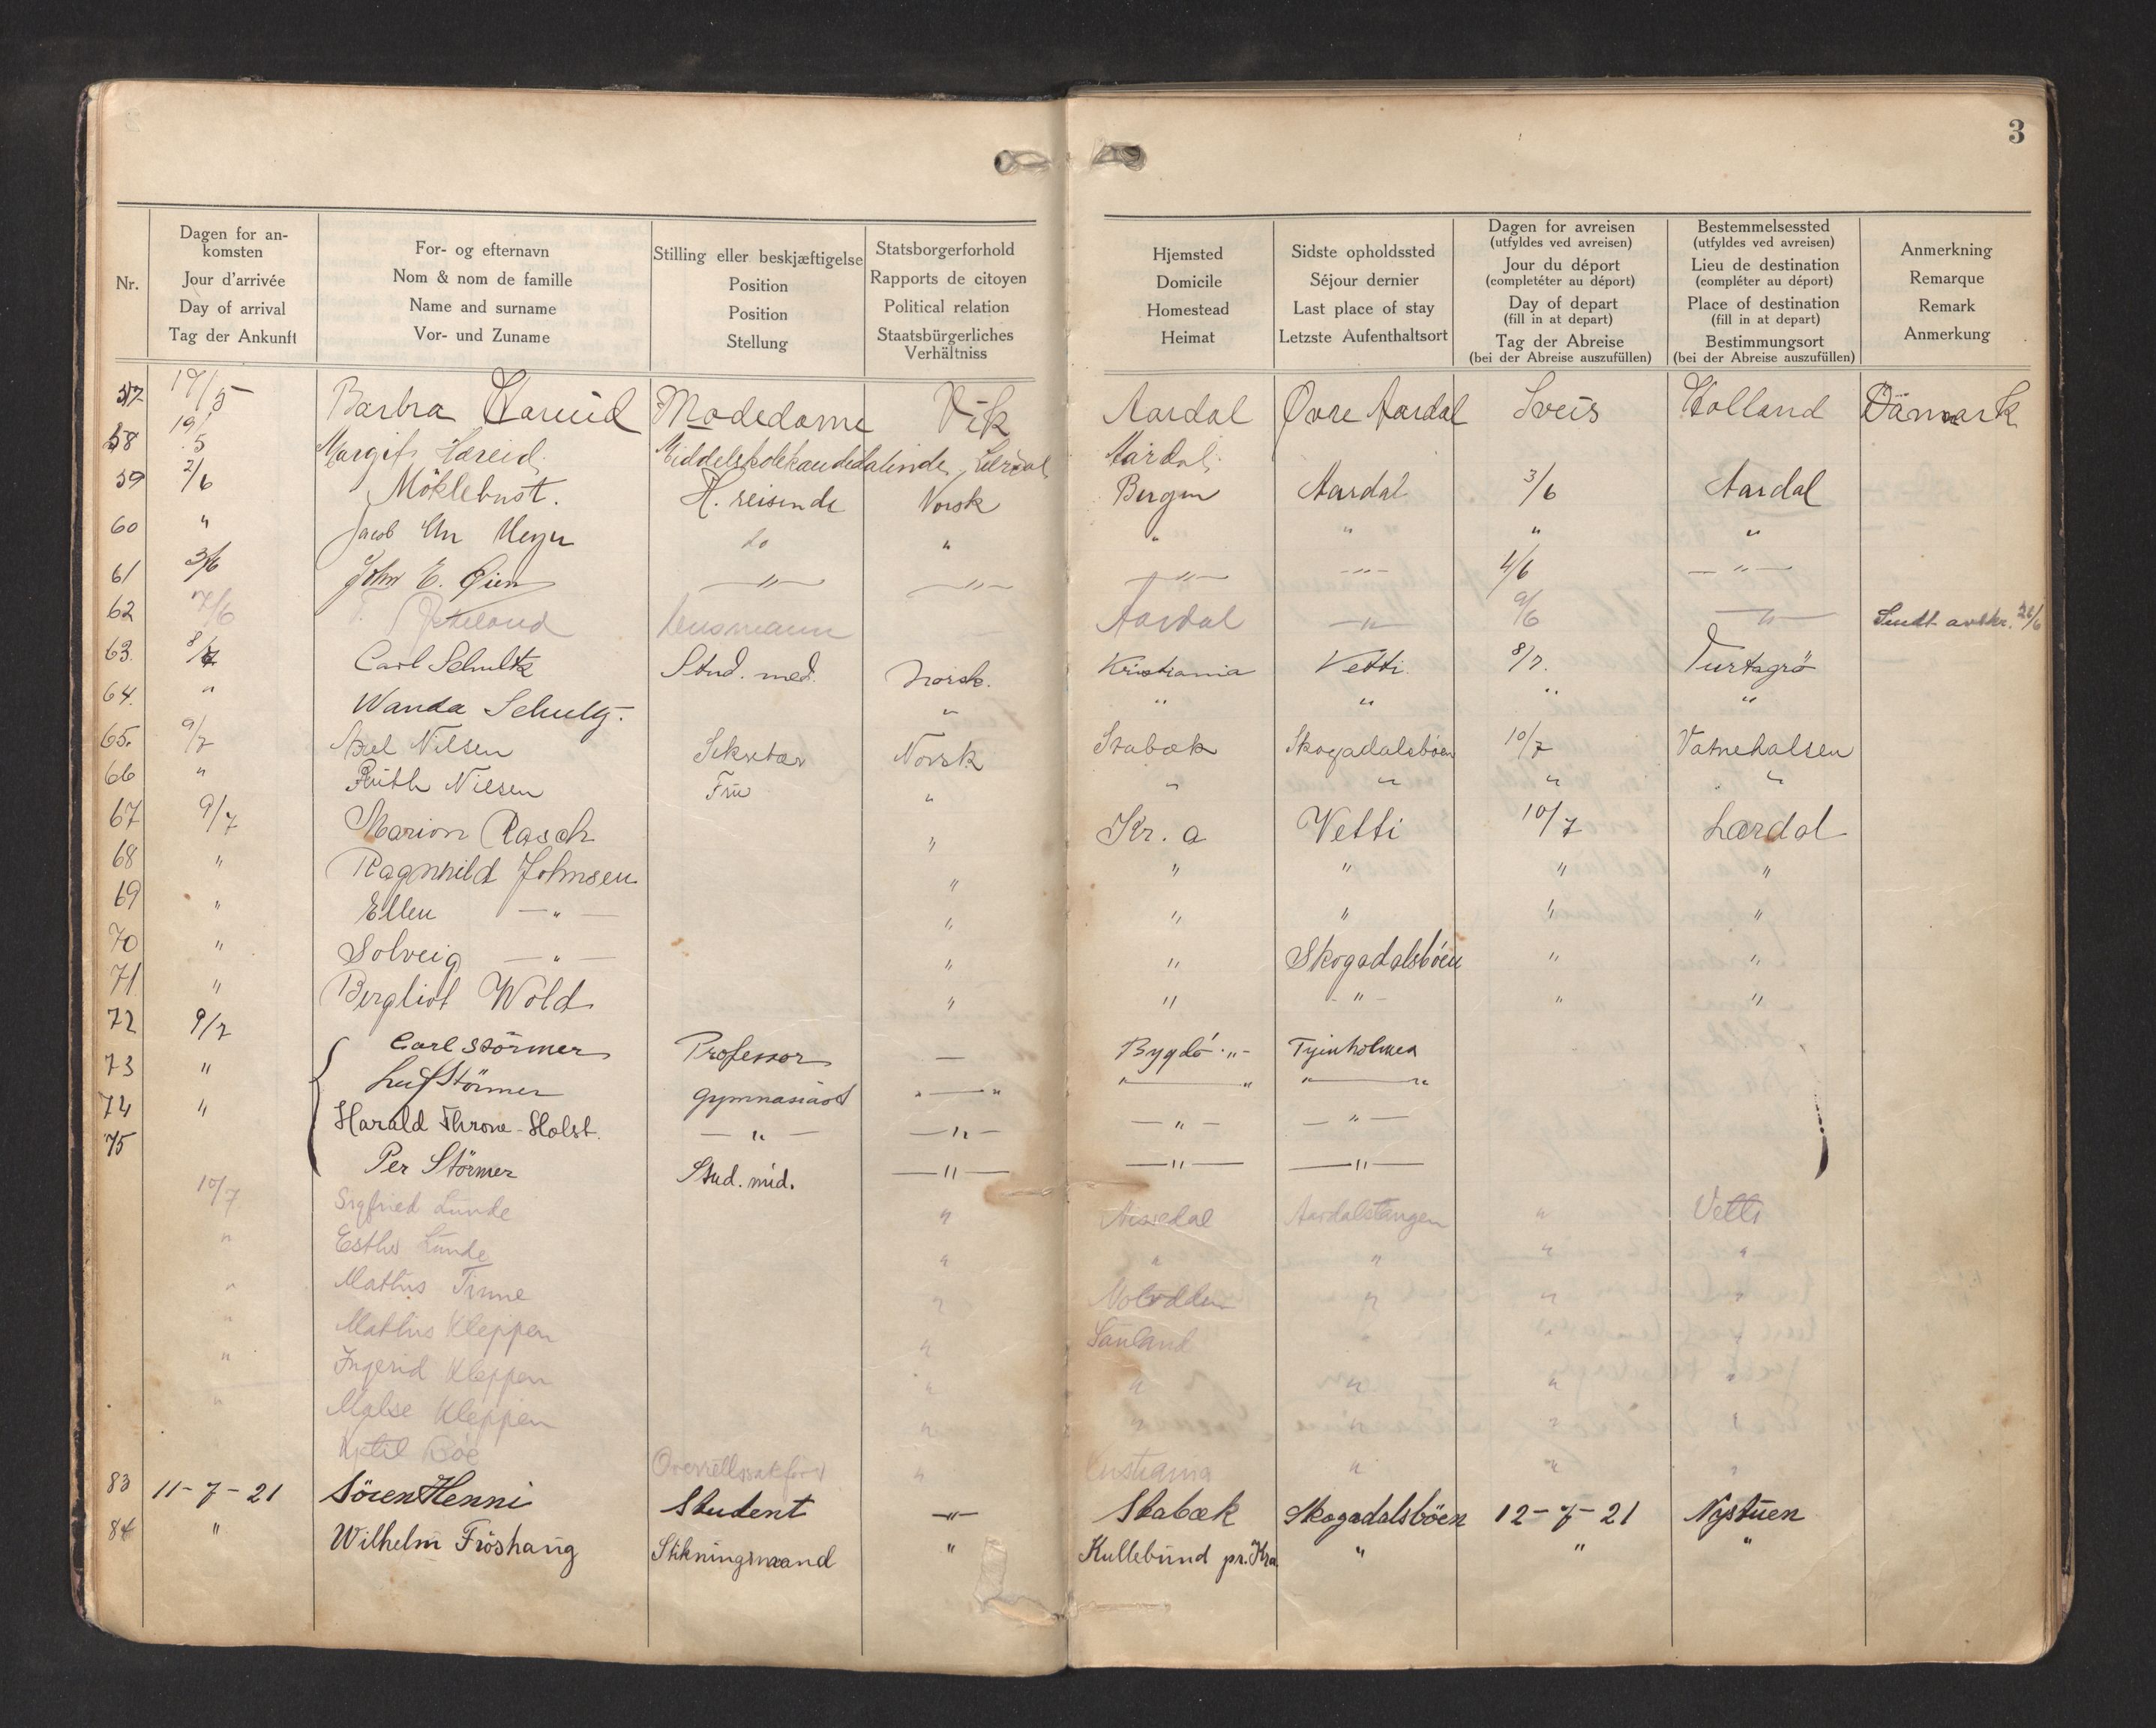 3
Nr.
Dagen for an-
komsten
Jour d'arrivée
Day of arrival
Tag der Ankunft
For- og efternavn
Nom & nom de famille
Name and surname
Vor- und Zuname
Stilling eller beskjæftigelse
Position
Position
Stellung
Statsborgerforhold
Rapports de citoyen
Political relation
Staatsbürgerliches
Verhältniss
Hjemsted
Domicile
Homestead
Heimat
Sidste opholdssted
Séjour dernier
Last place of stay
Letzste Aufenthaltsort
Dagen for avreisen
(utfyldes ved avreisen)
Jour du déport
(completéter au déport)
Day of depart
(fill in at depart)
Tag der Abreise
(bei der Abreise auszufüllen)
Bestemmelsessted
(utfyldes ved avreisen)
Lieu de destination
(compléter au déport)
Place of destination
(fill in at depart)
Bestimmungsort
(bei der Abreise auszufüllen)
Anmerkning
Remarque
Remark
Anmerkung
57 17/5 Barbra Modedame Vik Aardal Øvre Aardal Sveis Holland Dänmark
58 19/5 Margit Hæreid Middelskolekandidatinde Lærdal Aardal
59 2/6 Möklebust. H. reisende Norsk Bergen Aardal 3/6 Aardal
60 " Jacob Chr Meyer do " " " " "
61 3/6 John E. Øien —"— —"— —"— —"— 4/6 —"—
62 7/6 lensmann Aardal —"— 9/6 —"— Sendt avskr. 26/6
63. 8/7 Carl Schultz Stud. med. Norsk. Kristiania Vetti. 8/7. Turtagrö
64. " Wanda Schultz. " " " " "
65. 9/7 Axel Nilsen Sekretær Norsk Stabæk Skogadalsböen 10/7 Vatnehalsen
66 " Ruth Nilsen Fru " " " " "
67 9/7 Marion Rasch " Kr. a Vetti 10/7 Lærdal
68 " Ragnhild Johnsen " " " " "
69 " Ellen —"— " " " " "
70 " Solveig —"— " " Skogadalsböen " "
71 " Bergliot Wold " " —"— " "
72 9/7 Carl Störmer Professor — Bygdö -"- Tyinholmen
73 " Leif Störmer Gymnasiast "—" "—" "—"
74 " Harald Throne-Holst. —"— —"— —"— —"—
75 Per Störmer Stud. mid. —"— —"— —"—
10/7 Sigfried Lunde " Aardalstangen " Vetti
" Esther Lunde " " " " "
" Mathis " Notodden " " "
" Mathis Kleppen " Sauland " " "
" Ingerid Kleppen " " " " "
" Kleppen " " " " "
Kjetil Bøe " Kristiania " " "
83 11-7-21 Sören Henni Student —"— Stabæk Skogadalsböen 12-7-21 Nystuen
84 " Wilhelm Fröshaug Stikningsmand " Kullebund pr. Kra. " " "